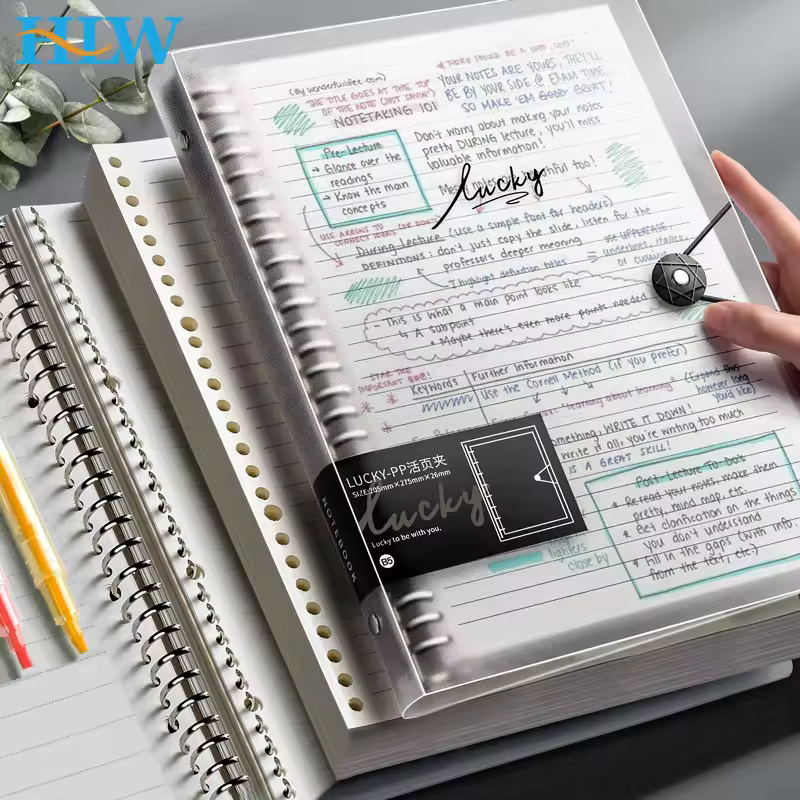 HLW
(By wonderfulifee.com)
THE TITLE GOES AT THE TOP
OF THE NOTE (JUST SAYIN')
NOTETAKING 101
YOUR NOTES ARE YOURS, THEY'LL
BE BY YOUR SIDE @ EXAM TIME
SO MAKE 'EM GOOD GREAT!
Don't worry about making your notes
pretty DURING lecture, you'll miss
valuable information!
Pre-Lecture
→ Glance over the
readings
→ Know the main
concepts
lucky
too!
USE ARROWS TO
CONNECT IDEAS
During lecture (use a simple font for headers)
DEFINITIONS: don't just copy the slide, listen for the
professors deeper meaning
highlight definition titles
= use UPPERCASE,
underlines, italics,
or
- This is what a main point looks like
↳ A subpoint
• Maybe there's even more points needed
STAR THE
IMPORTANT
Keywords
Further Information
Use the Cornell Method (if you prefer)
"learning about learning"
(Expand this
however long
you'd like)
WRITE IT DOWN!
write it all, you're writing too much
IS A GREAT SKILL!
LUCKY-PP活页夹
SIZE:205mm×275mm×26mm
lucky
Lucky to be with you.
B5
NOTEBOOK
close by
Post-Lecture To-Do's
• Re-read your notes, make them
pretty, mind map, etc.
• Get clarification on the things
you don't understand
• Fill in the gaps (with info.
from the text, etc.)